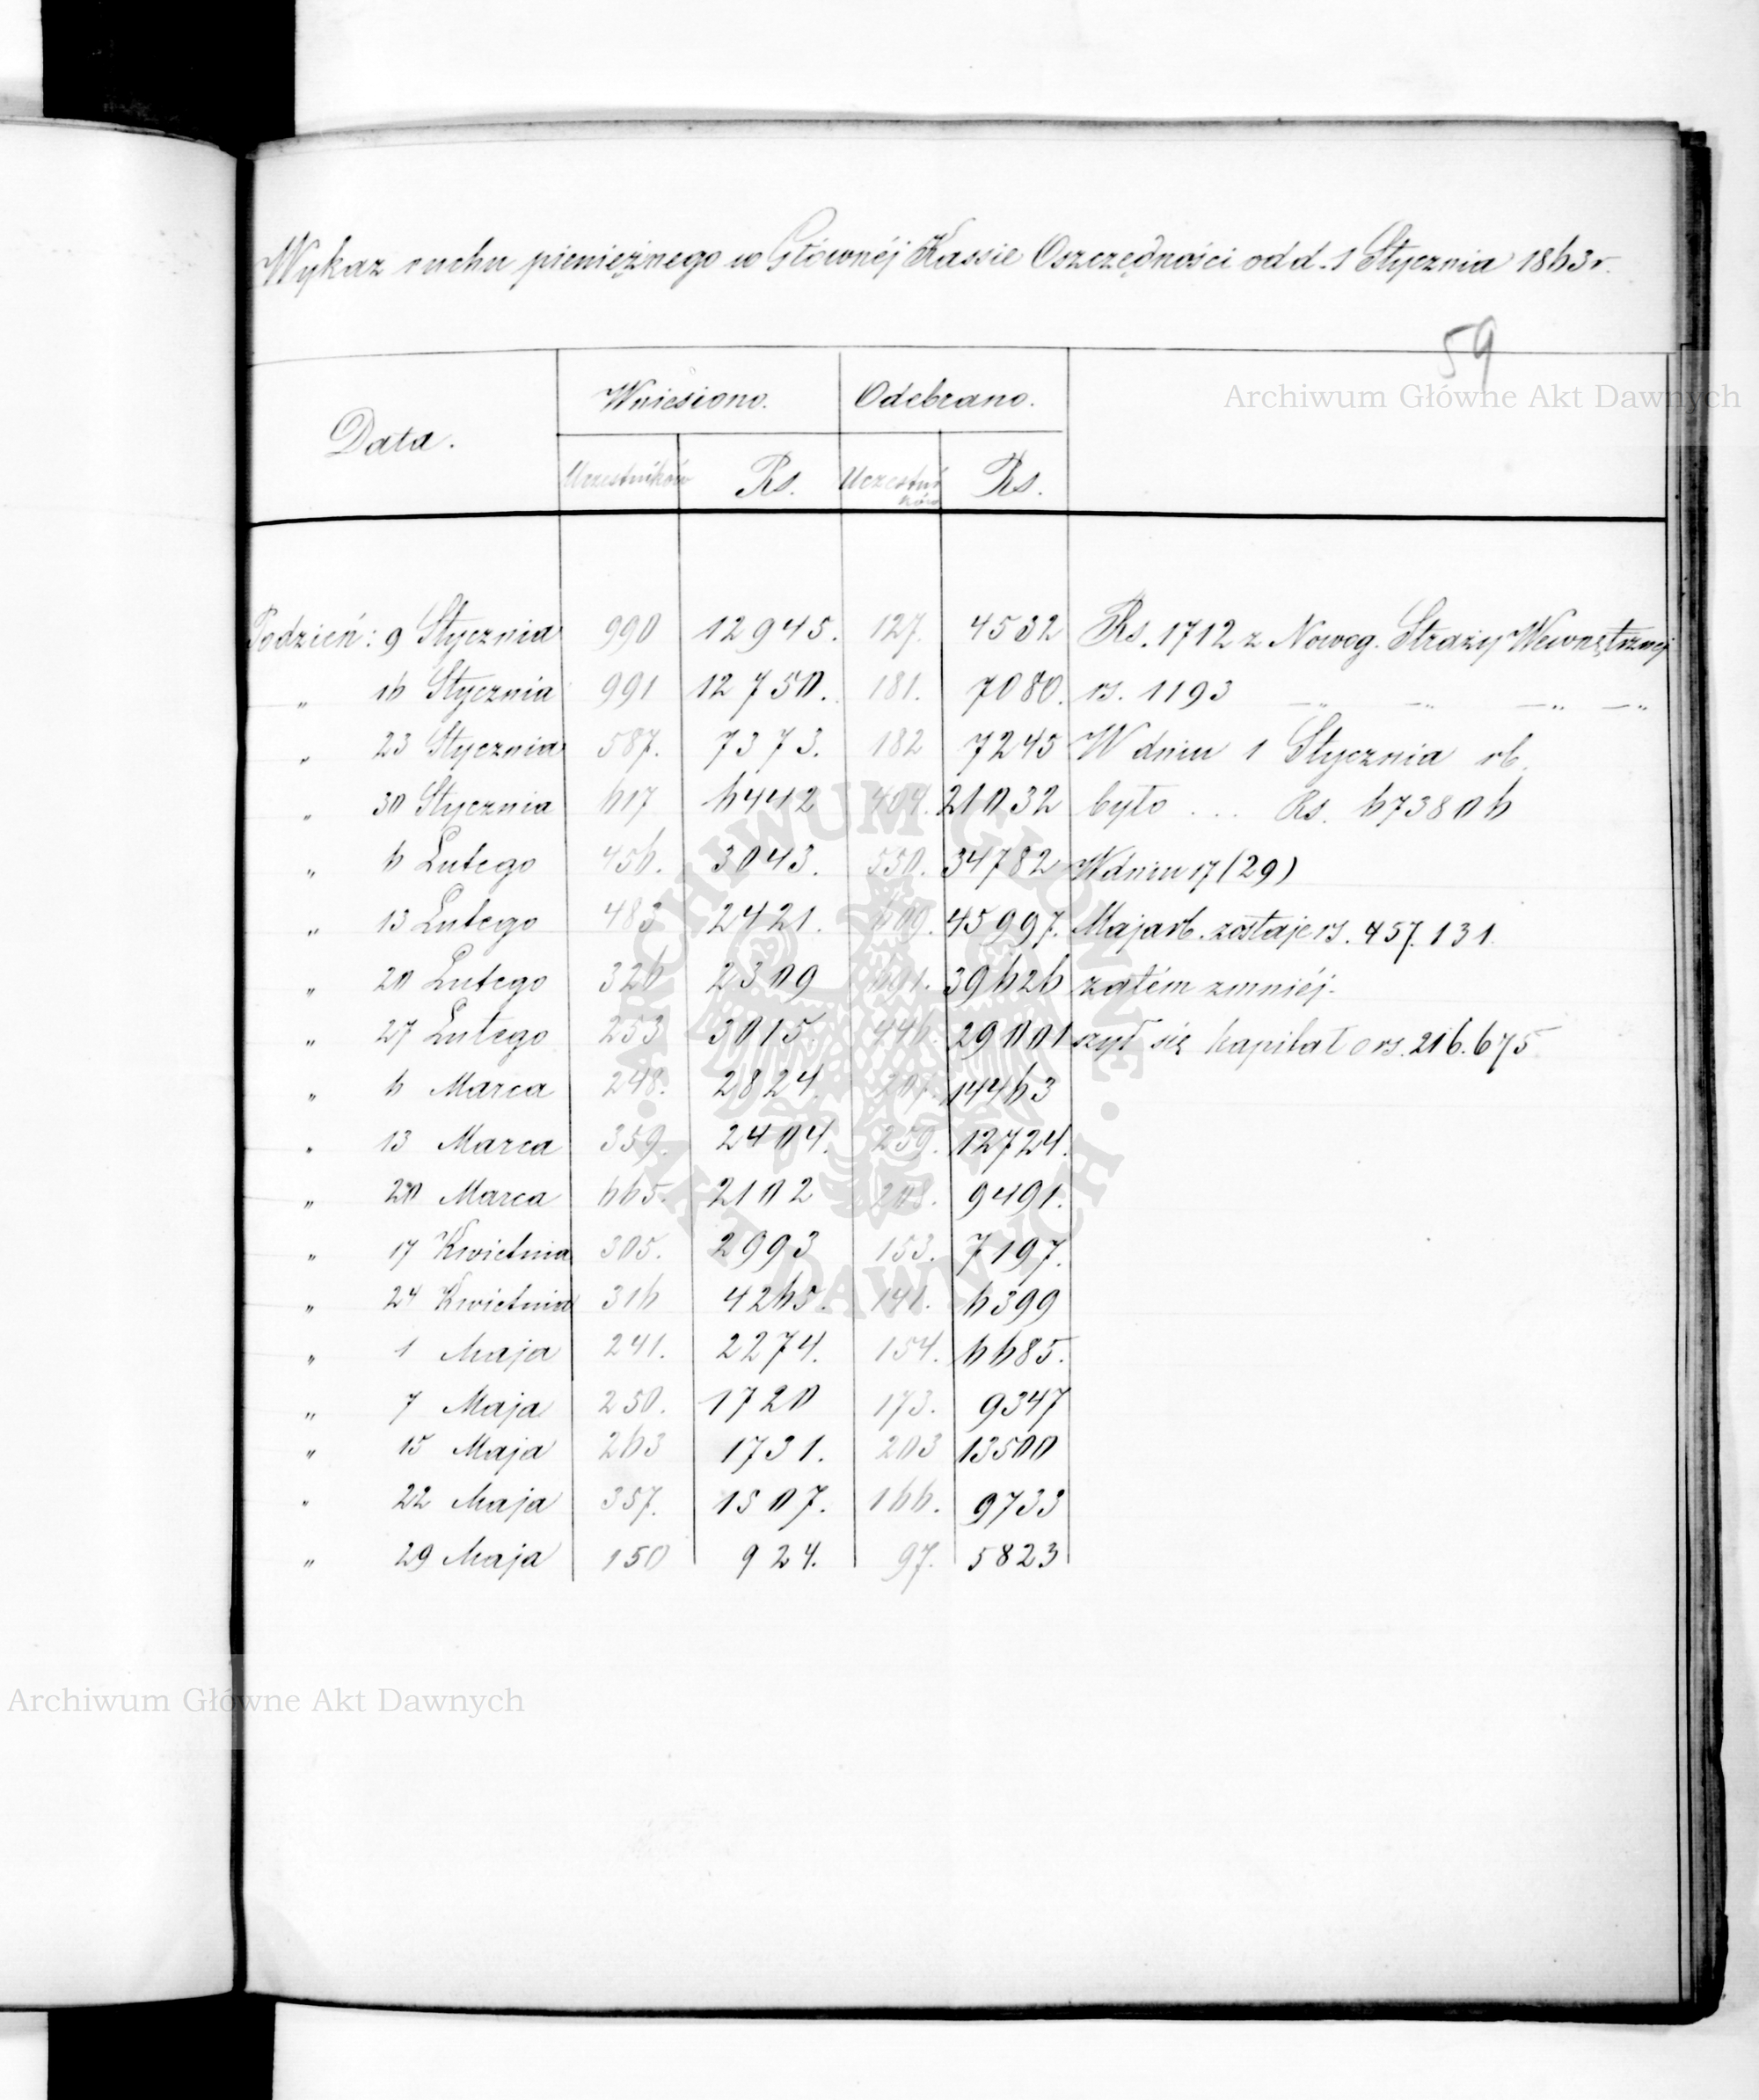 Wykaz ruchu pieniężnego w Głównéj Kassie Oszczędności od d. 1 Stycznia 1863 r.
59
Archiwum Główne Akt Dawnych
Data. Wniesiono. Odebrano.
Uczestników Rs. Uczestników Rs.
Podzień: 9 Stycznia 990 12945. 127. 4532 Rs. 1712 z Nowog. Straży Wewnętrznej
„ 16 Stycznia 991 12750. 181. 7080. rs. 1193 —„ —„ —„ —„
„ 23 Stycznia 587. 7373. 182 7245 W dniu 1 Stycznia rb.
„ 30 Stycznia 617 6442 404. 21032 było . . . Rs. 673806
„ 6 Lutego 456. 3043. 550. 34782 W dniu 17 (29)
„ 13 Lutego 483 2421. 609. 45997. Maja rb. zostaje rs. 457.131.
„ 20 Lutego 326 2309 691. 39626 zatém zmniéj-
„ 27 Lutego 253 3015. 446. 29001 szył się kapitał o rs. 216.675
„ 6 Marca 248. 2824. 207. 14463
„ 13 Marca 359. 2404. 259. 12724.
„ 20 Marca 665. 2102 208. 9491.
„ 17 Kwietnia 305. 2993 153. 7197.
„ 24 Kwietnia 316 4265. 141. 6399
„ 1 Maja 241. 2274. 154. 6685.
„ 7 Maja 250. 1720 173. 9347
„ 15 Maja 263 1731. 203 13500
„ 22 Maja 357. 1507. 166. 9733
„ 29 Maja 150 924. 97. 5823
ARCHIWUM GŁÓWNE · AKT DAWNYCH ·
Archiwum Główne Akt Dawnych